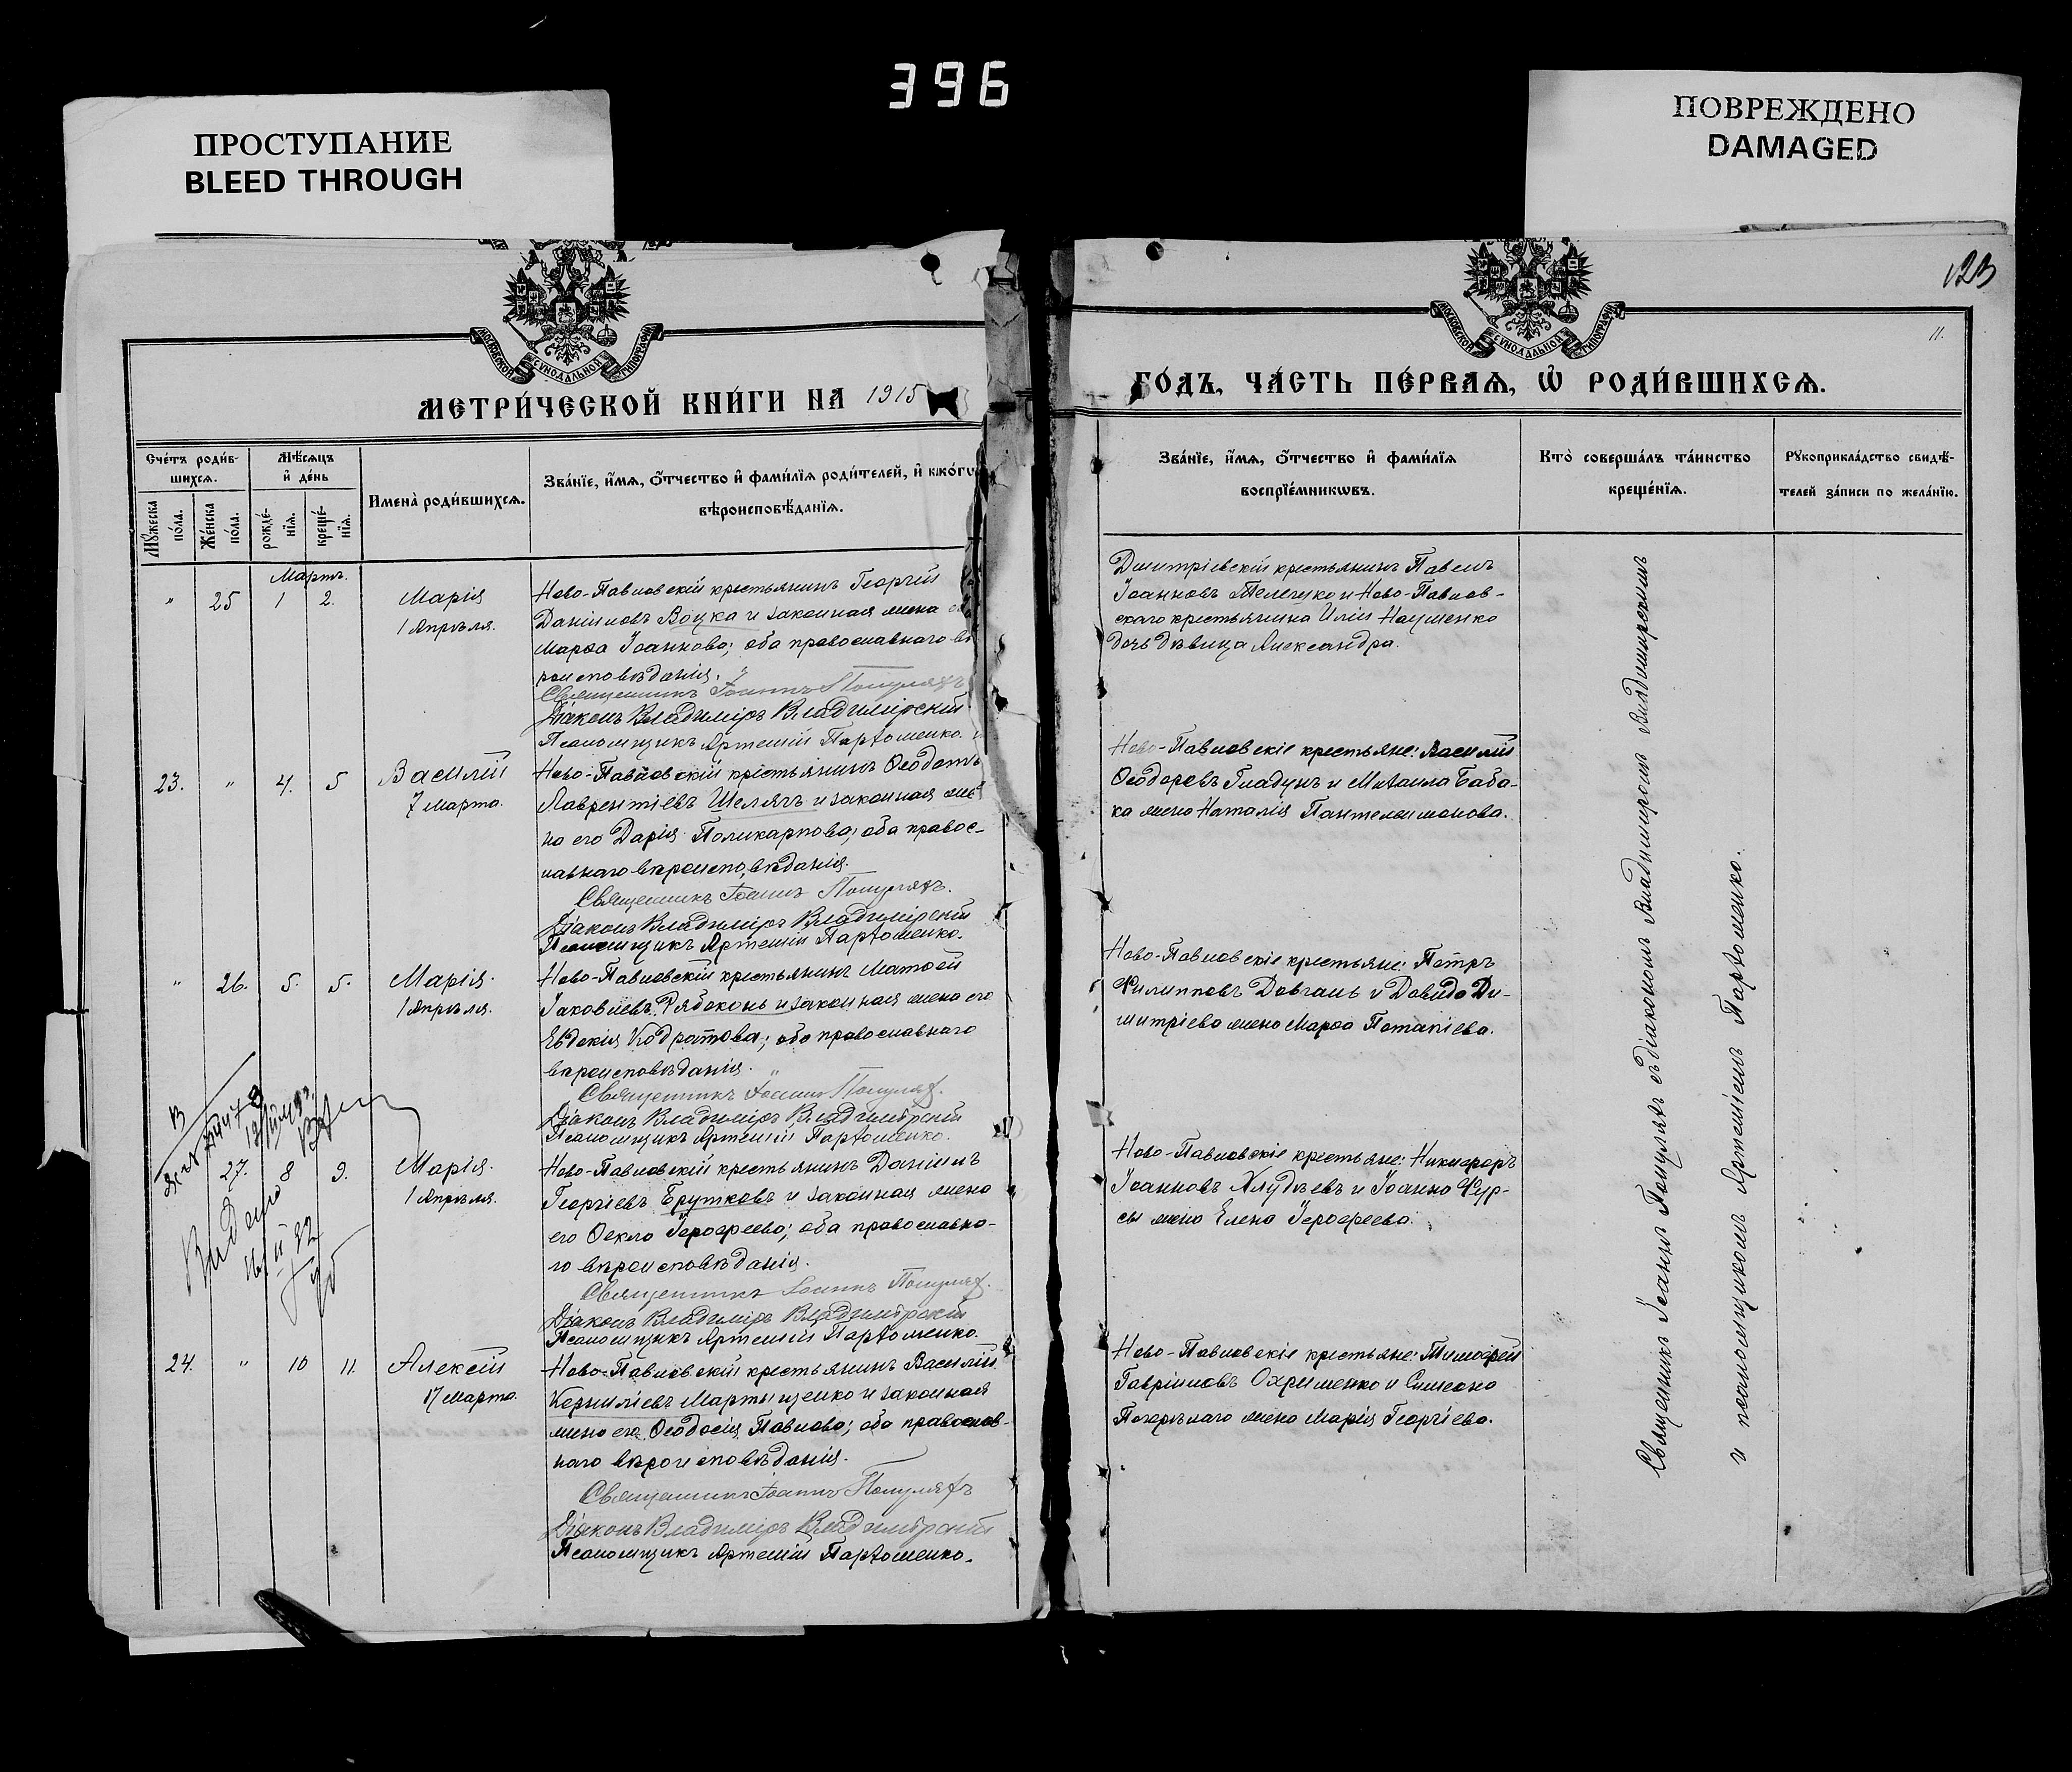 396
ПРОСТУПАНИЕ
BLEED THROUGH
ПОВРЕЖДЕНО
DAMAGED
123
11.
МОСКОВСКОЙ СѴНОДАЛЬНОЙ ТИПОГРАФІИ
МОСКОВСКОЙ СѴНОДАЛЬНОЙ ТИПОГРАФІИ
МЕТРИ́ЧЕСКОЙ КНИ́ГИ НА 1915
ГО́ДЪ, ЧА́СТЬ ПЕ́РВАѦ, Ѽ РОДИ́ВШИХСѦ.
Сче́тъ роди́в-
шихсѧ.
Мꙋ́жеска
по́ла.
Же́нска
по́ла.
Мѣ́сѧцъ
и҆ де́нь
рожде́-
нїѧ.
креще́-
нїѧ.
Имена̀ роди́вшихсѧ.
Зва́нїе, и҆́мѧ, ѻ҆́тчество и҆ фами́лїѧ роди́телей, и҆ како́гѡ
вѣроисповѣ́данїѧ.
Зва́нїе, и҆́мѧ, ѻ҆́тчество и҆ фами́лїѧ
воспрїе́мникѡвъ.
Кто̀ соверша́лъ та́инство
креще́нїѧ.
Рꙋкоприкла́дство свидѣ́-
телей за́писи по жела́нїю.
Мартъ.
" 25 1 2.
Марія
1 Апрѣля.
Ново-Павловскій крестьянинъ Георгій
Даніиловъ Воцка и законная жена
Марѳа Іоаннова; оба православнаго вѣ
роисповѣданія.
Священникъ Іоаннъ
Діаконъ Владиміръ Владимірскій
Псаломщикъ Артемій Пархоменко.
Дмитріевскій крестьянинъ Павелъ
Іоанновъ Телешко и Ново-Павлов-
скаго крестьянина Иліи Науменко
дочь дѣвица Александра.
23. " 4. 5
Василій
7 Марта.
Ново-Павловскій крестьянинъ Ѳеодотъ
Лаврентіевъ Шелягъ и законная же
на его Дарія Поликарпова; оба правос-
лавнаго вѣроисповѣданія.
Священникъ Іоаннъ
Діаконъ Владиміръ Владимірскій
Псаломщикъ Артемій Пархоменко.
Ново-Павловскіе крестьяне: Василій
Ѳеодоровъ Гладунъ и Михаила Баба-
ка жена Наталія Пантелеимонова.
" 26. 5. 5.
Марія.
1 Апрѣля.
Ново-Павловскій крестьянинъ Матѳей
Іаковлевъ Рябоконь и законная жена его
Евдокія Кодратова; оба православнаго
вѣроисповѣданія.
Священникъ Іоаннъ
Діаконъ Владиміръ Владимірскій
Псаломщикъ Артемій Пархоменко.
Ново-Павловскіе крестьяне: Петръ
Филипповъ Довгаль и Давида Ди-
митріева жена Марѳа Потапіева.
27. 8 9.
Марія.
1 Апрѣля.
Ново-Павловскій крестьянинъ Даніилъ
Георгіевъ Брутковъ и законная жена
его Ѳекла Іероѳеева; оба православна-
го вѣроисповѣданія.
Священникъ Іоаннъ
Діаконъ Владиміръ Владимірскій
Псаломщикъ Артемій Пархоменко.
Ново-Павловскіе крестьяне: Никифоръ
Іоанновъ Хлудѣевъ и Іоанна Фур-
сы жена Елена Іероѳеева.
24. " 10 11.
Алексій
17 Марта.
Ново-Павловскій крестьянинъ Василій
Корниліевъ Мартыщенко и законная
жена его Ѳеодосія Павлова; оба православ-
наго вѣроисповѣданія.
Священникъ Іоаннъ
Діаконъ Владиміръ Владимірскій
Псаломщикъ Артемій Пархоменко.
Ново-Павловскіе крестьяне: Тимоѳей
Гавріиловъ Охрименко и Симеона
Погорѣлаго жена Марія Георгіева.
Священникъ Іоаннъ съ діакономъ Владиміромъ Владимірскимъ
и псаломщикомъ Артеміемъ Пархоменко.